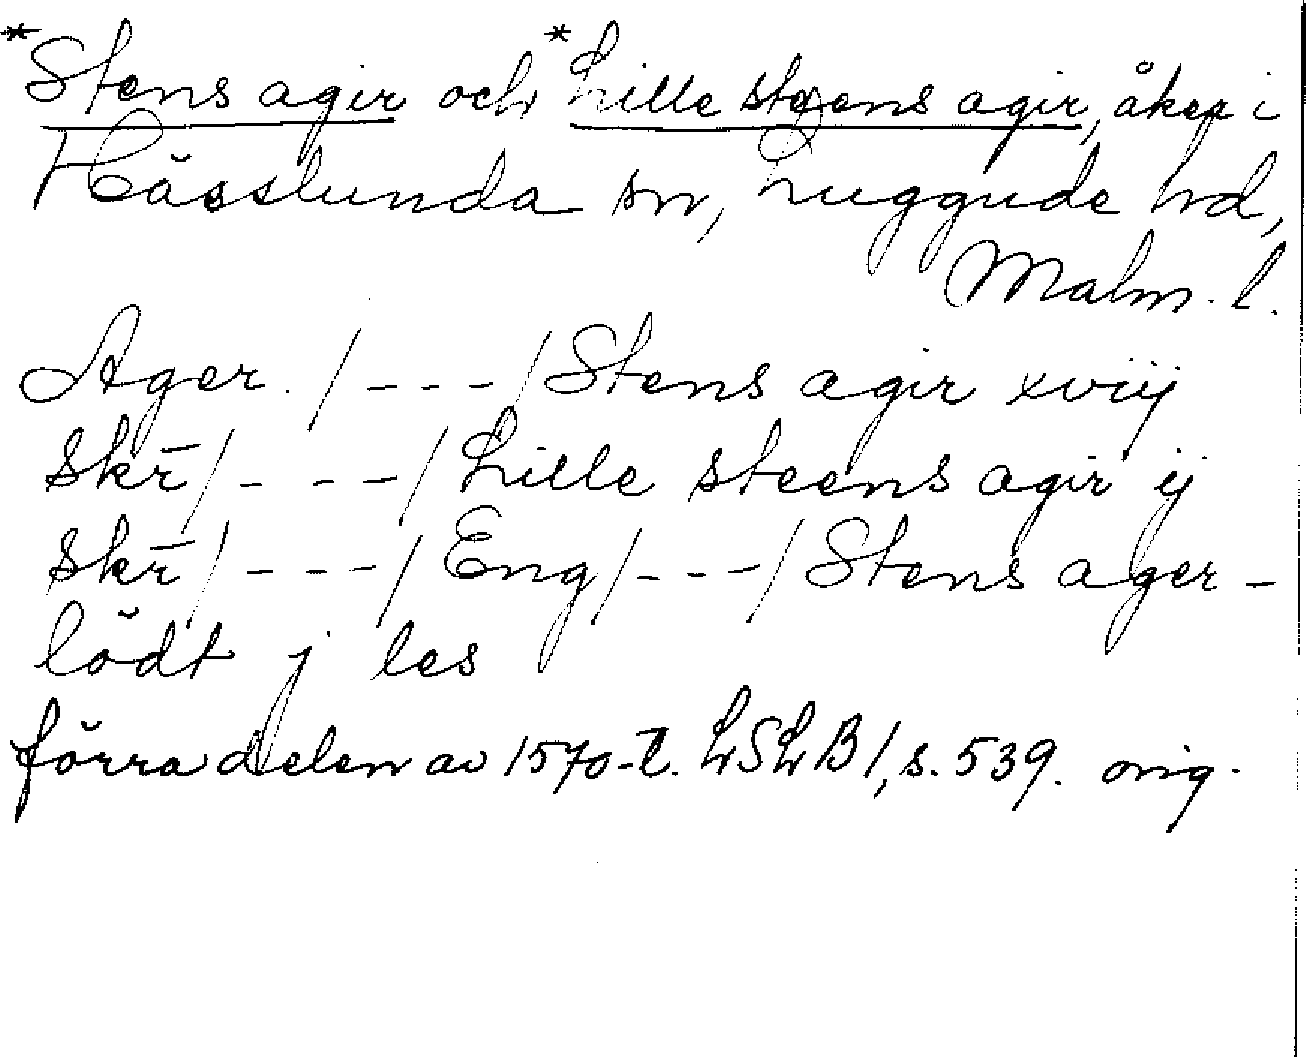 *Stens agir och *Lille steens agir, åker i
Hässlunda sn, Luggude hd,
Malm. l.
Ager. /---/ Stens agir xviij
skr̄ /---/ Lille steens agir ij
skr̄ /---/ Eng /---/ Stens ager-
lödt j les
förra delen av 1570-t. LSLB 1, s. 539. orig.